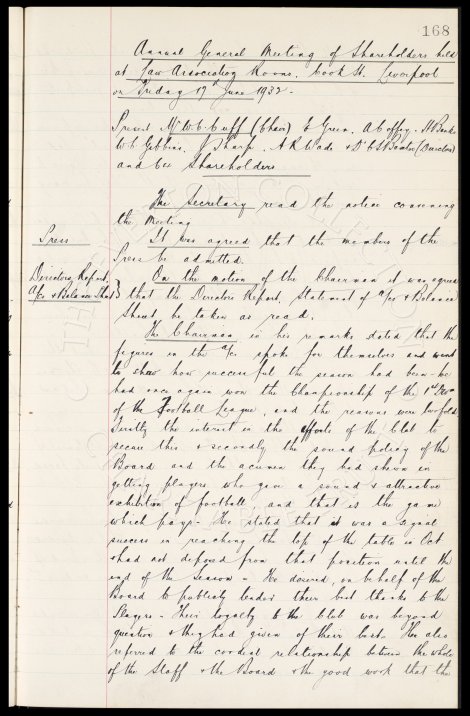 168
Annual General Meeting of Shareholders held
at Law Association Rooms, Cook St. Liverpool
on Friday 17th June 1932.
Present Mr W.C. Cuff (Chair) E Green, A Coffey, H Banks
W.C. Gibbins, J Sharp, A R Wade & Dr C S Baxter (Directors)
and Shareholders
The Secretary read the notice convening
the Meeting
Press
It was agreed that the members of the
Press be admitted.
Directors Report,
A/cs & Balance Sheet }
On the motion of the Chairman it was agreed
that the Directors Report, Statement of A/cs & Balance
Sheet be taken as read.
The Chairman in his remarks stated that the
figures in the A/c. spoke for themselves and went
to show how successful the season had been - we
had once again won the Championship of the 1st Div
of the Football League, and the reasons were twofold
Firstly the interest in the efforts of the Club to
secure this & secondly the sound policy of the
Board and the acumen they had shewn in
getting players who give a sound & attractive
exhibition of football, and that is the game
which pays - He stated that it was a signal
success in reaching the top of the table in Oct
& had not deposed from that position until the
end of the Season - He desired, on behalf of the
Board to publicly tender their best thanks to the
Players - Their loyalty to the Club was beyond
question & they had given of their best. He also
referred to the cordial relationship between the whole
of the Staff & the Board & the good work that the